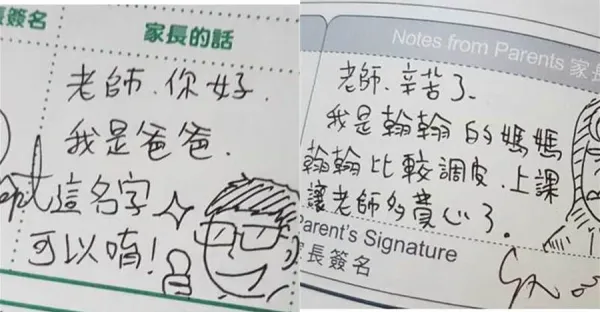 簽名
家長的話
老師.你好.
我是爸爸.
這名字
可以唷!
Notes from Parents 家長
老師.辛苦了.
我是翰翰的媽媽
翰翰比較調皮.上課
讓老師多費心了.
Parent's Signature
長簽名